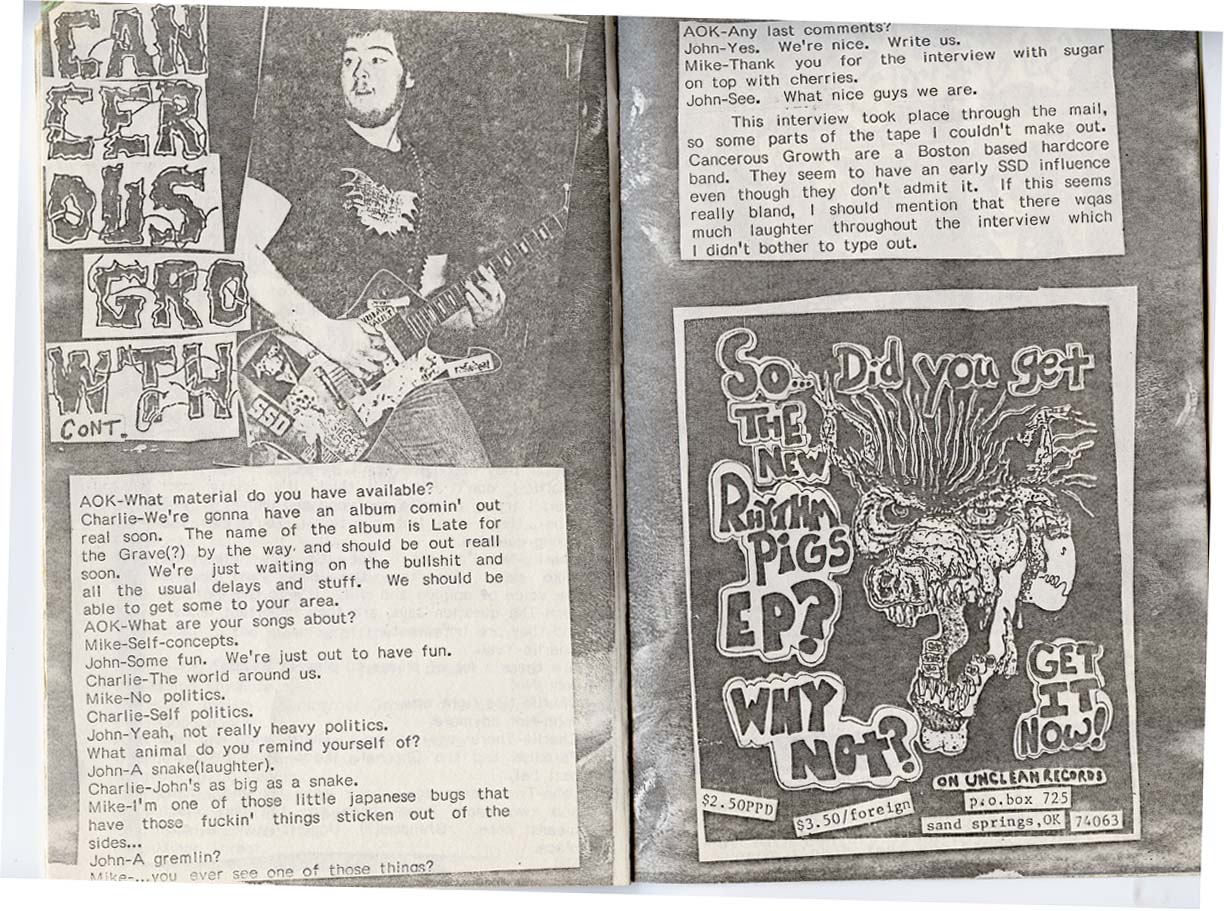 CAN
CER
OUS
GRO
WTH
CONT.
SSD
AOK-What material do you have available?
Charlie-We're gonna have an album comin' out
real soon. The name of the album is Late for
the Grave(?) by the way. and should be out reall
soon. We're just waiting on the bullshit and
all the usual delays and stuff. We should be
able to get some to your area.
AOK-What are your songs about?
Mike-Self-concepts.
John-Some fun. We're just out to have fun.
Charlie-The world around us.
Mike-No politics.
Charlie-Self politics.
John-Yeah, not really heavy politics.
What animal do you remind yourself of?
John-A snake(laughter).
Charlie-John's as big as a snake.
Mike-I'm one of those little japanese bugs that
have those fuckin' things sticken out of the
sides...
John-A gremlin?
Mike-...you ever see one of those things?
AOK-Any last comments?
John-Yes. We're nice. Write us.
Mike-Thank you for the interview with sugar
on top with cherries.
John-See. What nice guys we are.
This interview took place through the mail,
so some parts of the tape I couldn't make out.
Cancerous Growth are a Boston based hardcore
band. They seem to have an early SSD influence
even though they don't admit it. If this seems
really bland, I should mention that there wqas
much laughter throughout the interview which
I didn't bother to type out.
So... Did you get
THE
NEW
RHYTHM
PIGS
EP?
WHY
NOT?
GET
IT
NOW!
ON UNCLEAN RECORDS
$2.50PPD
$3.50/foreign
p.o.box 725
sand springs,OK 74063